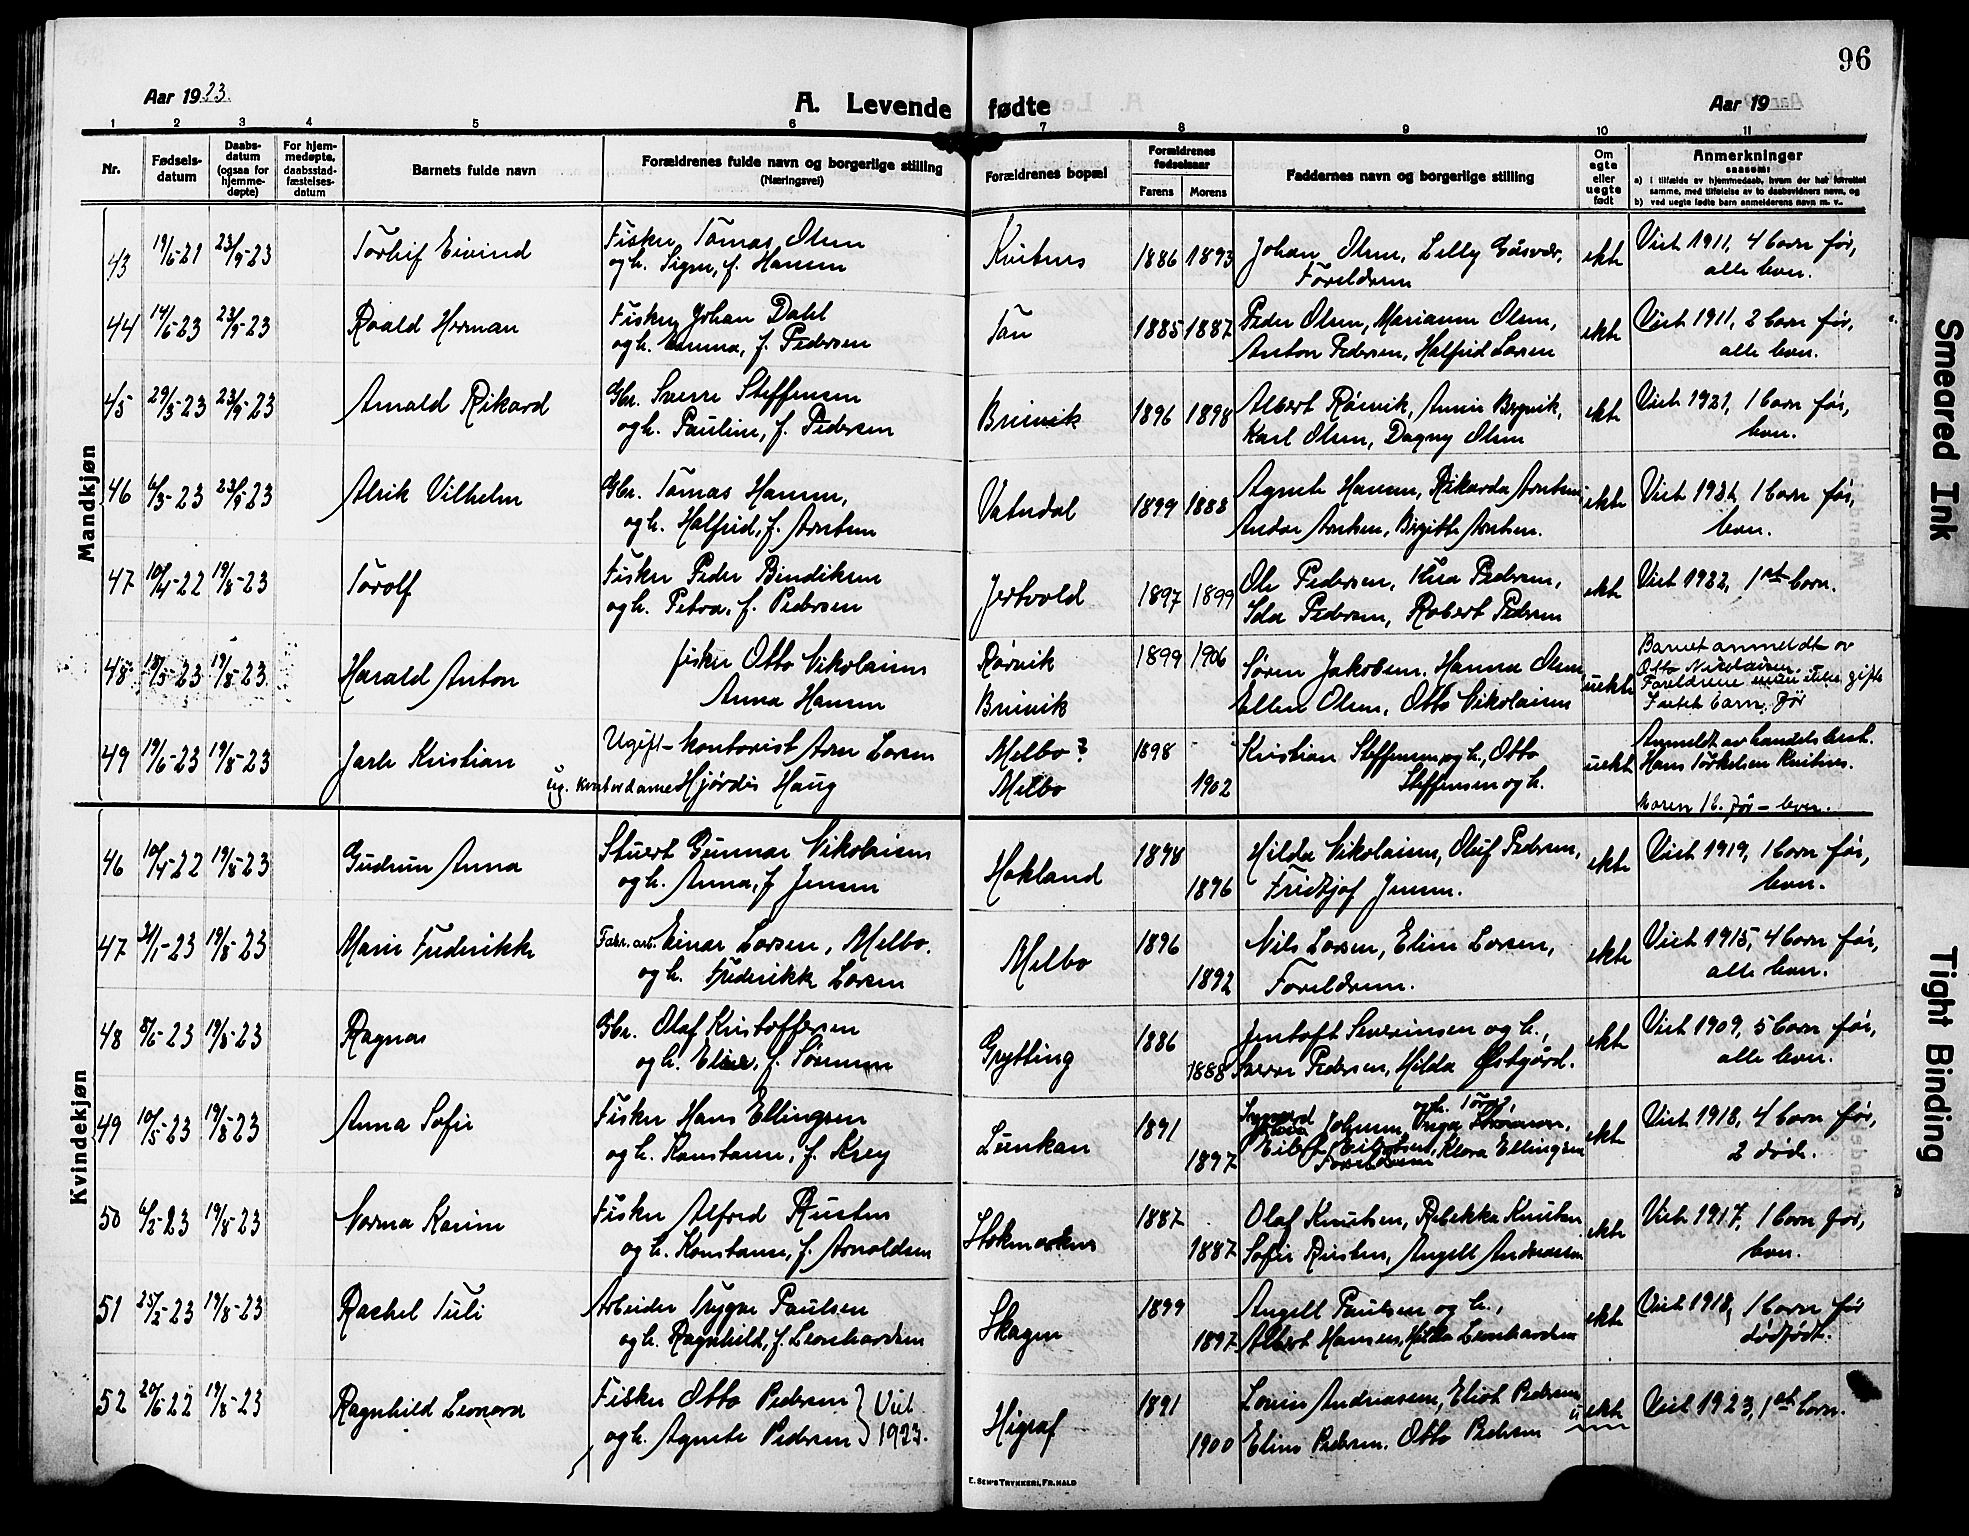 96
Aar 1923.
A. Levende fødte
Aar 19
1 2 3 4 5 6 7 8 9 10 11
Nr.
Fødsels-
datum
Daabs-
datum
(ogsaa for
hjemme-
døpte)
For hjem-
medøpte,
daabsstad-
fæstelses-
datum
Barnets fulde navn
Forældrenes fulde navn og borgerlige stilling
(Næringsvei)
Forældrenes bopæl
Forældrenes
fødselsaar
Farens Morens
Faddernes navn og borgerlige stilling
Om
egte
eller
uegte
født
Anmerkninger
saasom:
a) i tilfælde av hjemmedaab, hvem der har forrettet
samme, med tilføielse av to daabsvidners navn, og
b) ved uegte fødte barn anmelderens navn m. v..
Mandkjøn
43 19/6-21 23/9-23 Torleif Eivind Fisker Tomas Olsen Kvitnes 1886 1893 Johan Olsen, Lilly Gåsvær, ekte Viet 1911, 4 barn før,
og h. Signe, f. Hansen Foreldrene alle lever.
44 14/6-23 23/9-23 Roald Herman Fisker Johan Dahl Tan 1885 1887 Peder Olsen, Marianne Olsen, ekte Viet 1911, 2 barn før,
og h. Emma, f. Pedersen Anton Pedersen, Halfrid Larsen alle lever.
45 29/3-23 23/9-23 Arnold Rikard Gbr. Sverre Steffensen Breivik 1896 1898 Albert Rørvik, Annie Bergvik, ekte Viet 1921, 1 barn før,
og h. Pauline, f. Pedersen Karl Olsen, Dagny Olsen lever.
46 6/3-23 23/9-23 Alrik Vilhelm Gbr. Tomas Hansen, Vatndal 1899 1888 Agnete Hansen, Rikarda Arntsen ekte Viet 1921, 1 barn før,
og h. Halfrid, f. Arntsen Andor Arntsen, Birgitte Arntsen. lever.
47 10/4-22 19/8-23 Torolf Fisker Peder Bendiksen Jertvold 1897 1899 Ole Pedersen, Pedersen, ekte Viet 1922, 1ste barn.
og h. Petra, f. Pedersen Ida Pedersen, Robert Pedersen
48 18/5-23 19/8-23. Harald Anton fisker Otto Nikolaisen Rørvik 1899 1906 Søren Jakobsen, Hanna Olsen uekte Barnet anmeldt av
Anna Hansen Breivik Ellen Olsen, Otto Nikolaisen Otto Nicolaisen.
Foreldrene gifte
barn før
49 19/6-23 19/8-23 Jarle Kristian Ugift kontorist Arne Larsen Melbo? 1898 Kristian Steffensen og h., Otto uekte Anmeldt av handelsbest.
ug. kontordame Hjørdis Haug Melbo 1902 Steffensen og h. Hans Torkelsen Kvitnes.
Moren 1 b. før – lever.
Kvindekjøn
46 10/4-22 19/8-23 Gudrun Anna Stuert Gunnar Nikolaisen Hokland 1898 Hilda Nikolaisen, Oluf Pedersen, ekte Viet 1919, 1 barn før,
og h. Anna, f. Jensen 1896 Fridtjof Jensen. lever.
47 31/1-23 19/8-23 Marie Frederikke Fabr. arb. Einar Larsen, Melbo. Melbo 1896 Nils Larsen, Eline Larsen, ekte Viet 1915, 4 barn før,
og h. Frederikk Larsen 1892 Foreldrene. alle lever.
48 8/6-23 19/8-23 Ragna Gbr. Olaf Kristoffersen Grytting 1886 Jentoft Severinsen og h., ekte Viet 1909, 5 barn før,
og h. Elise, f. Sørensen 1888 Sverre Pedersen, Hilda Østgård. alle lever.
49 10/5-23 19/8-23 Anna Sofie Fisker Hans Ellingsen Lunkan 1891 Johnsen, og h. Inga ekte Viet 1918, 4 barn før,
og h. Konstanse, f. Krey 1897 Eilert Eilertsen, Klara Ellingsen 2 døde.
Foreldrene
50 6/2-23 19/8-23 Norma Karine Fisker Alfred Risten Stokmarknes 1887 Olaf Knutsen, Rebekka Knutsen ekte Viet 1917, 1 barn før,
og h. Konstanse, f. Arnoldsen 1887 Sofie Risten, Angell Andreassen lever.
51 25/2-23 19/8-23 Rachel Tuli Arbeider Trygve Paulsen Skagen 1899 Angell Paulsen og h., ekte Viet 1918, 1 barn før
og h. Ragnhild, f. Leonhardsen 1897 Albert Hansen, Hilda Leonhardsen dødfødt.
52 20/6-22 19/8-23 Ragnhild Leonora Fisker Otto Pedersen } Viet Higraf 1891 Andreasen, Eliot Pedersen uekte Viet 1923, 1ste barn.
og h. Agnete Pedersen 1923. 1900 Eline Pedersen. Otto Pedersen
E. SEM'S TRYKKERI, FR.HALD
Smeared Ink
Tight Binding